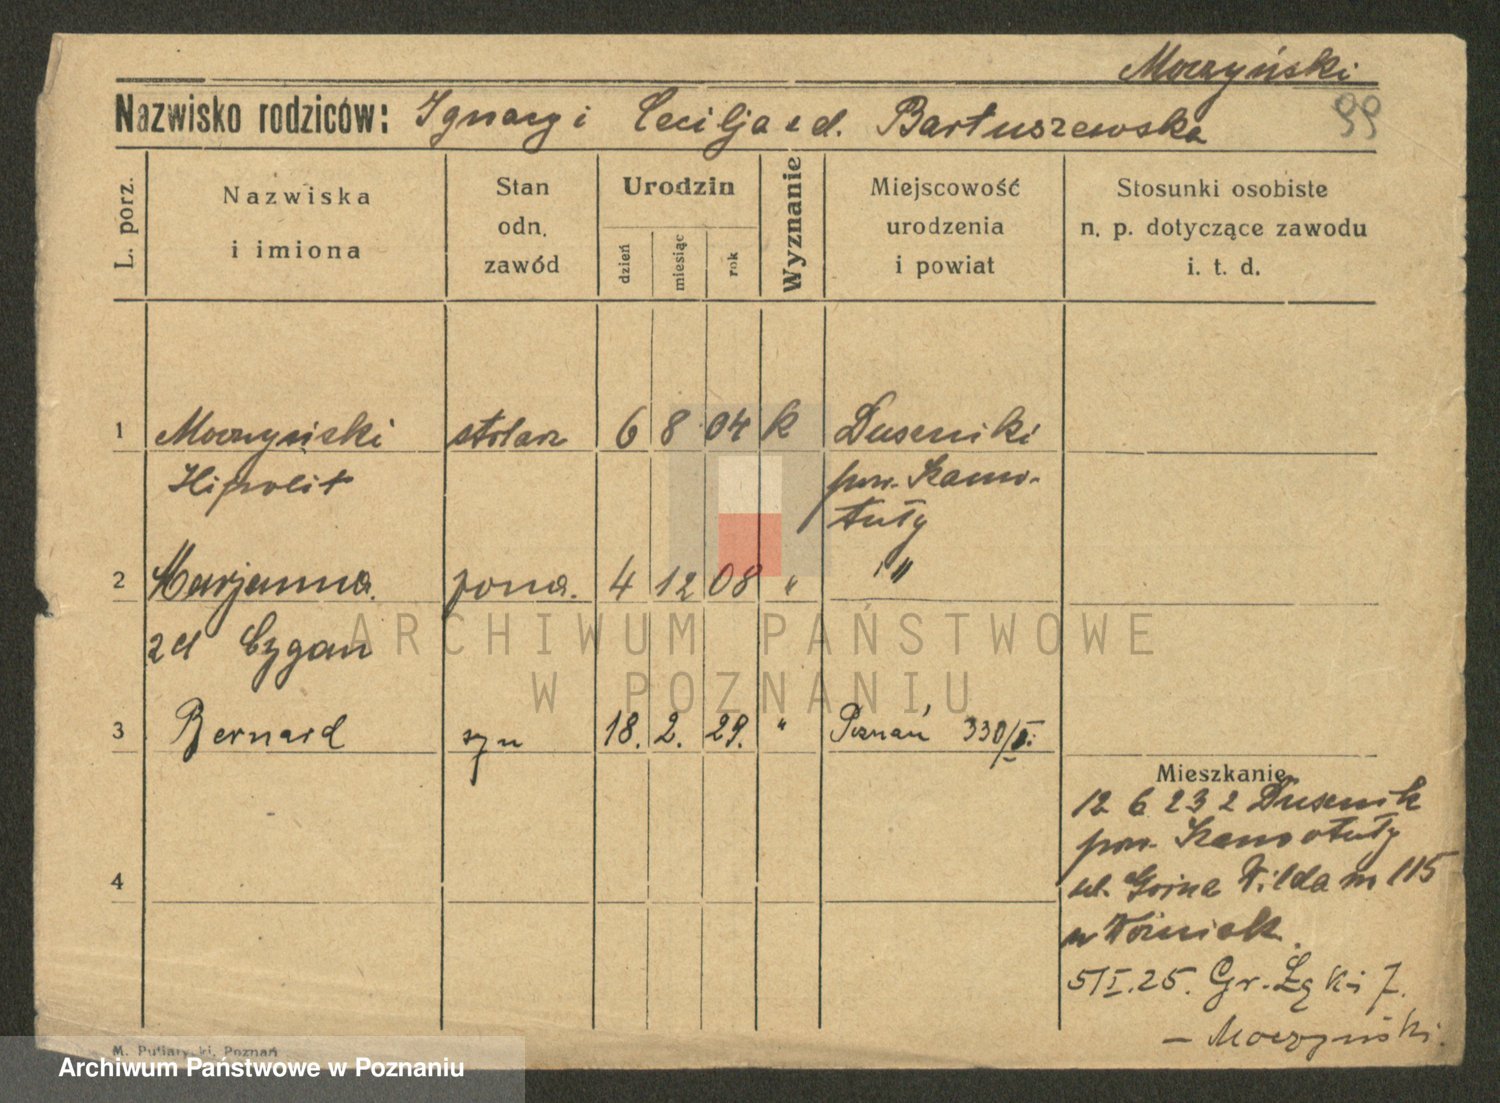 Moczyński
Nazwisko rodziców: Ignacy i Cecilja z d. Bartuszewska
99
L. porz.
Nazwiska
i imiona
Stan
odn.
zawód
Urodzin
dzień
miesiąc
rok
Wyznanie
Miejscowość
urodzenia
i powiat
Stosunki osobiste
n. p. dotyczące zawodu
i. t. d.
1 Moczyński stolarz 6 8 04 k Duszniki
Hipolit pow. Szamo-
tuły
2 Marjanna żona. 4 12 08 " "
zd Cygan
3 Bernard syn 18. 2. 29. " Poznań 330/II.
Mieszkanie
12 6 23 z Dusznik
pow. Szamotuły
4
ul. Górna Wilda m 115
u Woźniak.
5/I. 25. Gr. Łąki 7.
– Moczyński.
M. Putiatycki, Poznań
ARCHIWUM PAŃSTWOWE
W POZNANIU
Archiwum Państwowe w Poznaniu